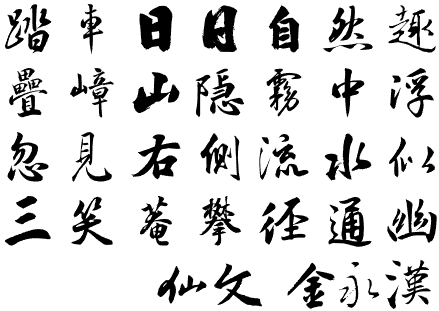 踏車日日自然趣
疊嶂山隐霧中浮
忽見右側流水似
三笑菴攀徑通幽
仙文 金永漢